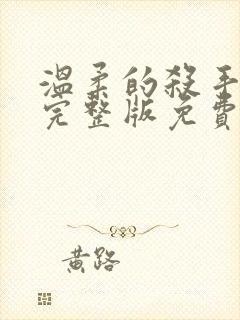 溫柔的殺手
完整版免費
黃路